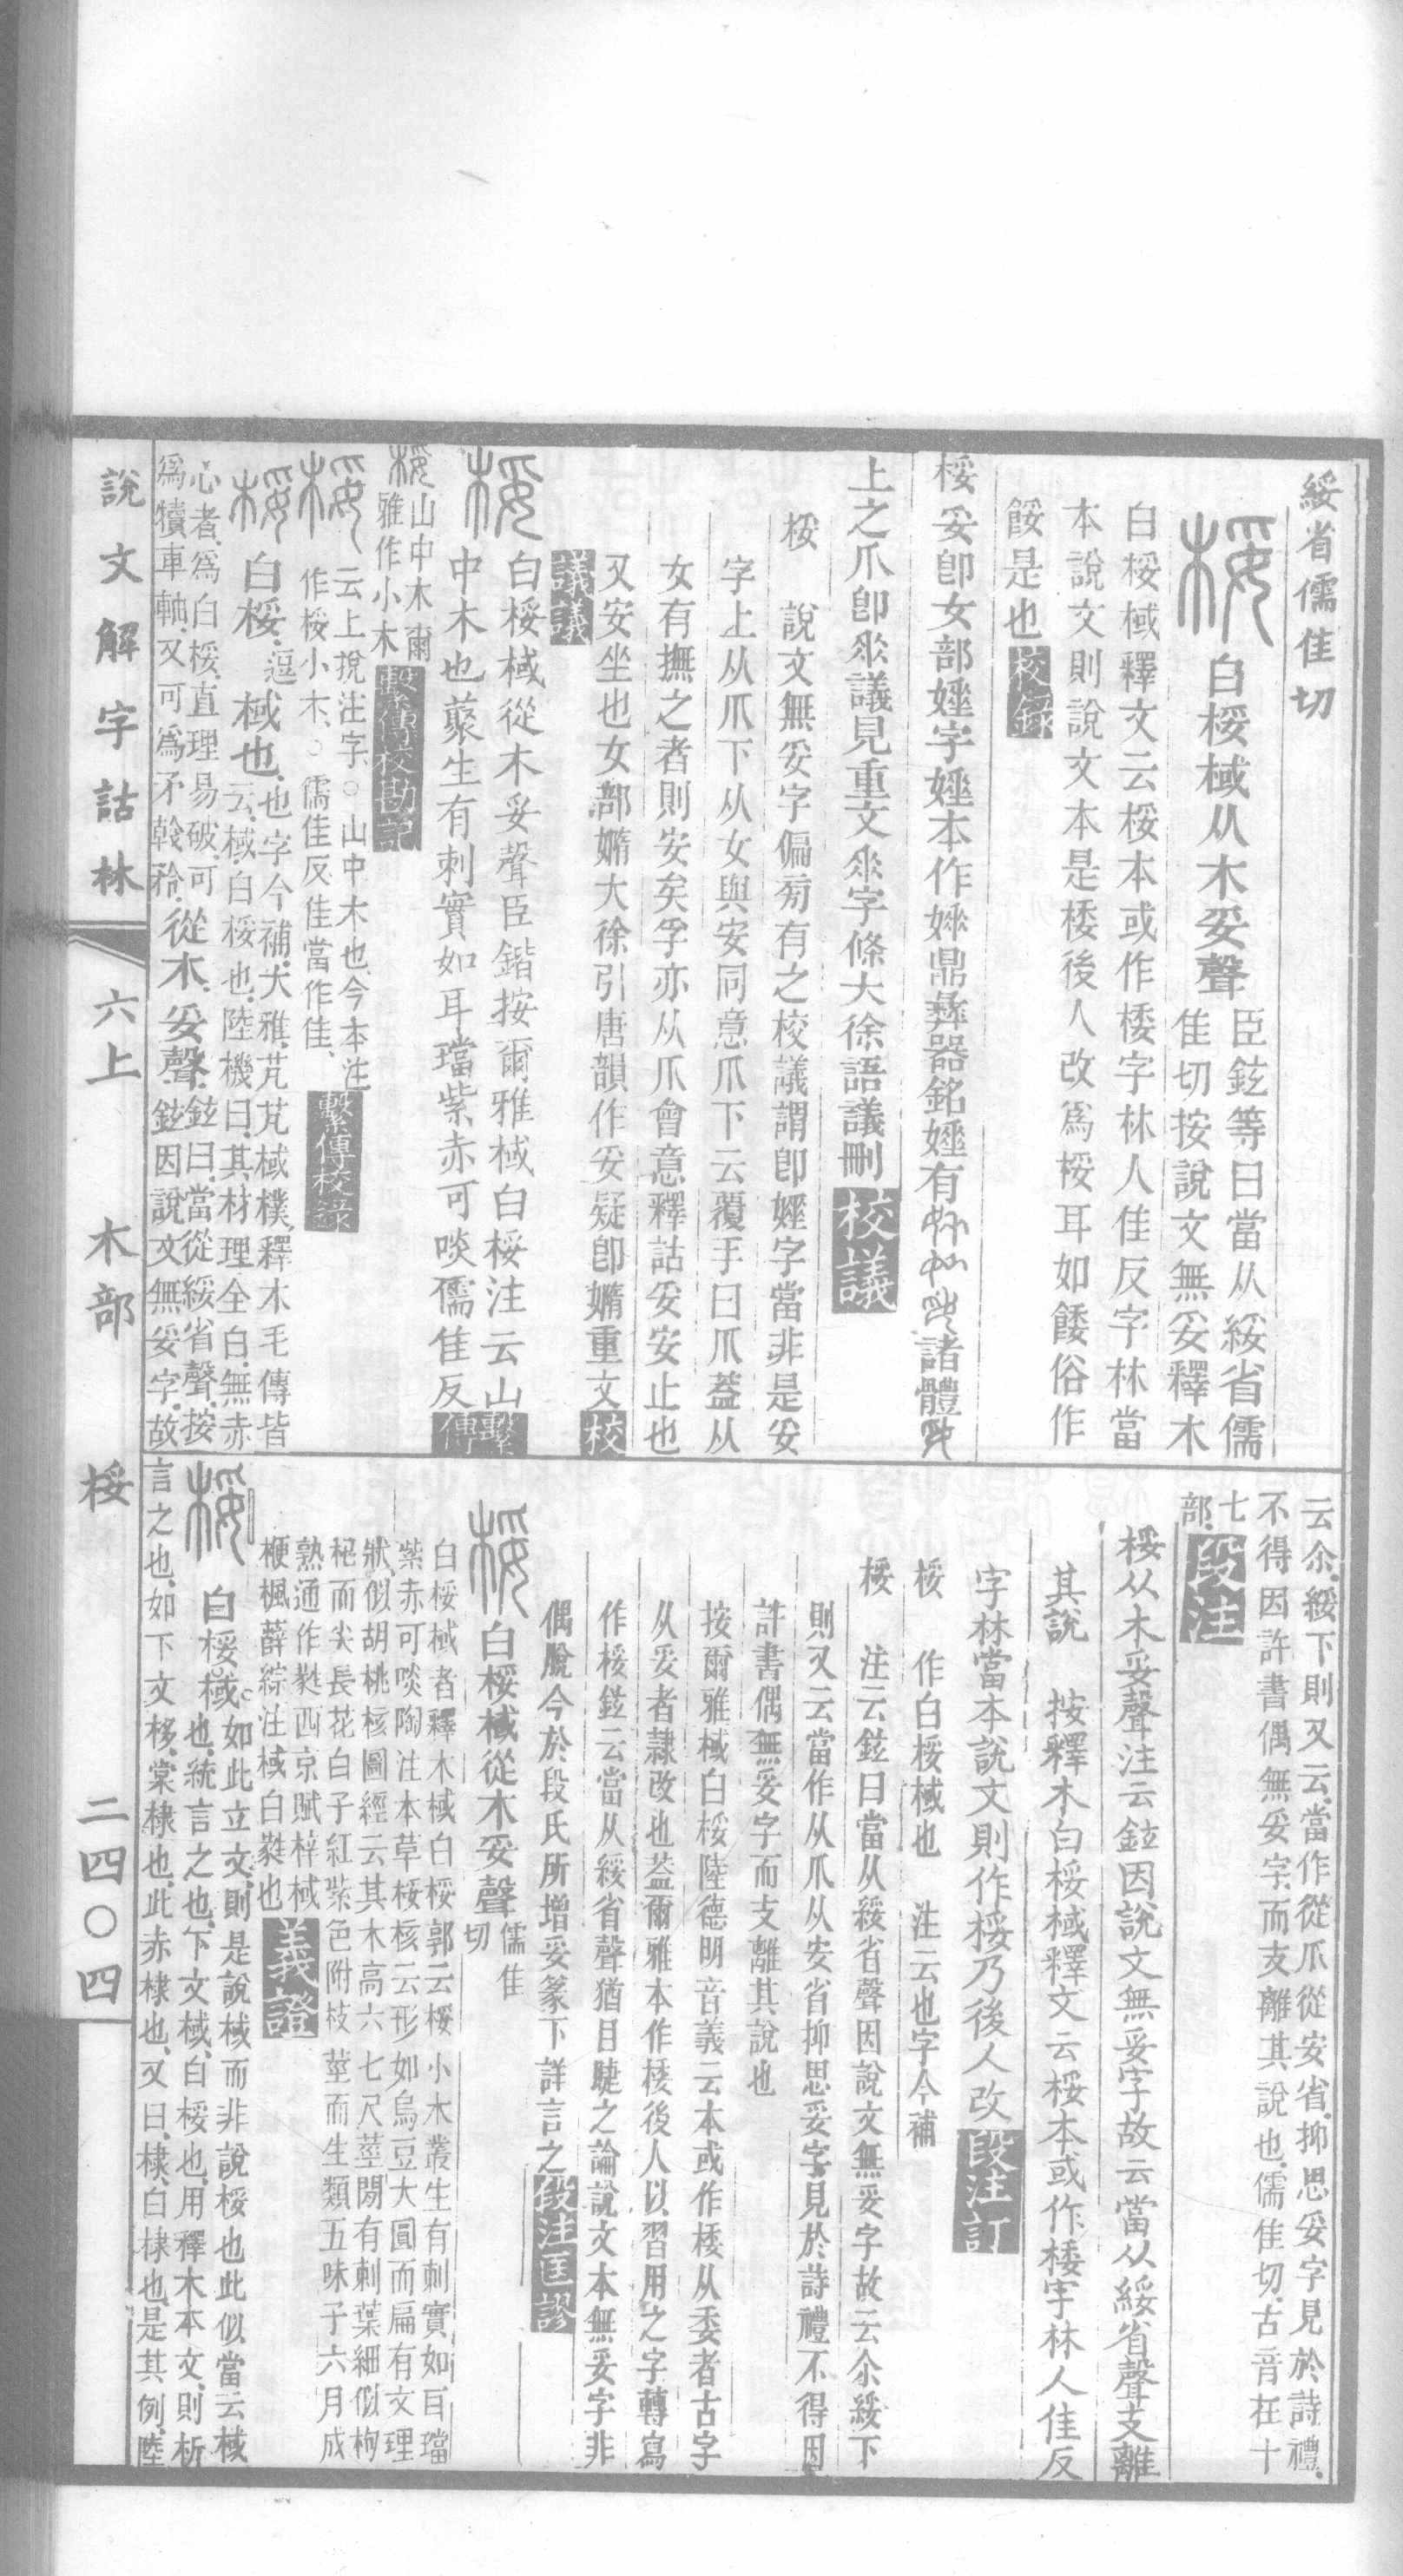 綏省儒隹切
桵 白桵棫从木妥聲 臣鉉等曰當从綏省儒
隹切按說文無妥釋木
白桵棫釋文云桵本或作㮃字林人隹反字林當
本說文則說文本是㮃後人改爲桵耳如餧俗作
餒是也 校錄
桵妥卽女部娷字娷本作㛐鼎彝器銘娷有諸體
上之爪卽𠂹議見重文𠂹字條大徐語議刪 校議
桵 說文無妥字偏㫄有之校議謂卽娷字當非是妥
字上从爪下从女與安同意爪下云覆手曰爪蓋从
女有撫之者則安矣孚亦从爪會意釋詁妥安止也
又安坐也女部媠大徐引唐韻作妥疑卽媠重文 校
議議
桵 白桵棫從木妥聲臣鍇按爾雅棫白桵注云山
中木也藂生有刺實如耳璫紫赤可啖儒隹反 繫
傳
桵 山中木爾
雅作小木 繫傳校勘記
桵 云上挩注字○山中木也今本注
作桵小木○儒佳反佳當作隹 繫傳校錄
桵 白桵逗棫也也字今補大雅芃芃棫樸釋木毛傳皆
云棫白桵也陸機曰其材理全白無赤
心者爲白桵直理易破可
爲犢車軸又可爲矛戟矜從木妥聲鉉曰當從綏省聲按
鉉因說文無妥字故
云尒綏下則又云當作從爪從安省抑思妥字見於詩禮
不得因許書偶無妥字而支離其說也儒隹切古音在十
七
部 段注
桵从木妥聲注云鉉因說文無妥字故云當从綏省聲支離
其說 按釋木白桵棫釋文云桵本或作㮃字林人隹反
字林當本說文則作桵乃後人改 段注訂
桵 作白桵棫也 注云也字今補
桵 注云鉉曰當从綏省聲因說文無妥字故云尒綏下
則又云當作从爪从安省抑思妥字見於詩禮不得因
許書偶無妥字而支離其說也
按爾雅棫白桵陸德明音義云本或作㮃从委者古字
从妥者隸改也蓋爾雅本作㮃後人以習用之字轉寫
作桵鉉云當从綏省聲猶目睫之論說文本無妥字非
偶脫今於段氏所增妥篆下詳言之 段注匡謬
桵 白桵棫從木妥聲 儒隹
切
白桵棫者釋木棫白桵郭云桵小木叢生有刺實如耳璫
紫赤可啖陶注本草桵核云形如烏豆大圓而扁有文理
狀似胡桃核圖經云其木高六七尺莖閒有刺葉細似枸
杞而尖長花白子紅紫色附枝莖而生類五味子六月成
熟通作㽔西京賦梓棫
楩楓薛綜注棫白㽔也 義證
桵 白桵棫也如此立文則是說棫而非說桵也此似當云棫
也統言之也下文棫白桵也用釋木本文則析
言之也如下文栘棠棣也此赤棣也又曰棣白棣也是其例陸
說文解字詁林 六上 木部 桵 二四〇四